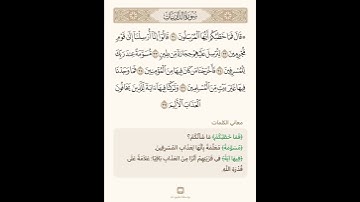 سُورَةُ الذَّارِيَاتِ
۞ قَالَ فَمَا خَطْبُكُمْ أَيُّهَا الْمُرْسَلُونَ ٣١ قَالُوا إِنَّا أُرْسِلْنَا إِلَىٰ قَوْمٍ
مُّجْرِمِينَ ٣٢ لِنُرْسِلَ عَلَيْهِمْ حِجَارَةً مِّن طِينٍ ٣٣ مُّسَوَّمَةً عِندَ رَبِّكَ
لِلْمُسْرِفِينَ ٣٤ فَأَخْرَجْنَا مَن كَانَ فِيهَا مِنَ الْمُؤْمِنِينَ ٣٥ فَمَا وَجَدْنَا
فِيهَا غَيْرَ بَيْتٍ مِّنَ الْمُسْلِمِينَ ٣٦ وَتَرَكْنَا فِيهَا آيَةً لِّلَّذِينَ يَخَافُونَ
الْعَذَابَ الْأَلِيمَ ٣٧
معاني الكلمات
﴿فَمَا خَطْبُكُمْ﴾ مَا شَأْنُكُمْ؟
﴿مُسَوَّمَةً﴾ مُعَلَّمَةً بِأَنَّهَا لِعَذَابِ المُسْرِفِينَ
﴿فِيهَا آيَةً﴾ فِي قَرْيَتِهِمْ أَثَرًا مِنَ العَذَابِ بَاقِيًا؛ عَلَامَةً عَلَى
قُدْرَةِ اللَّهِ